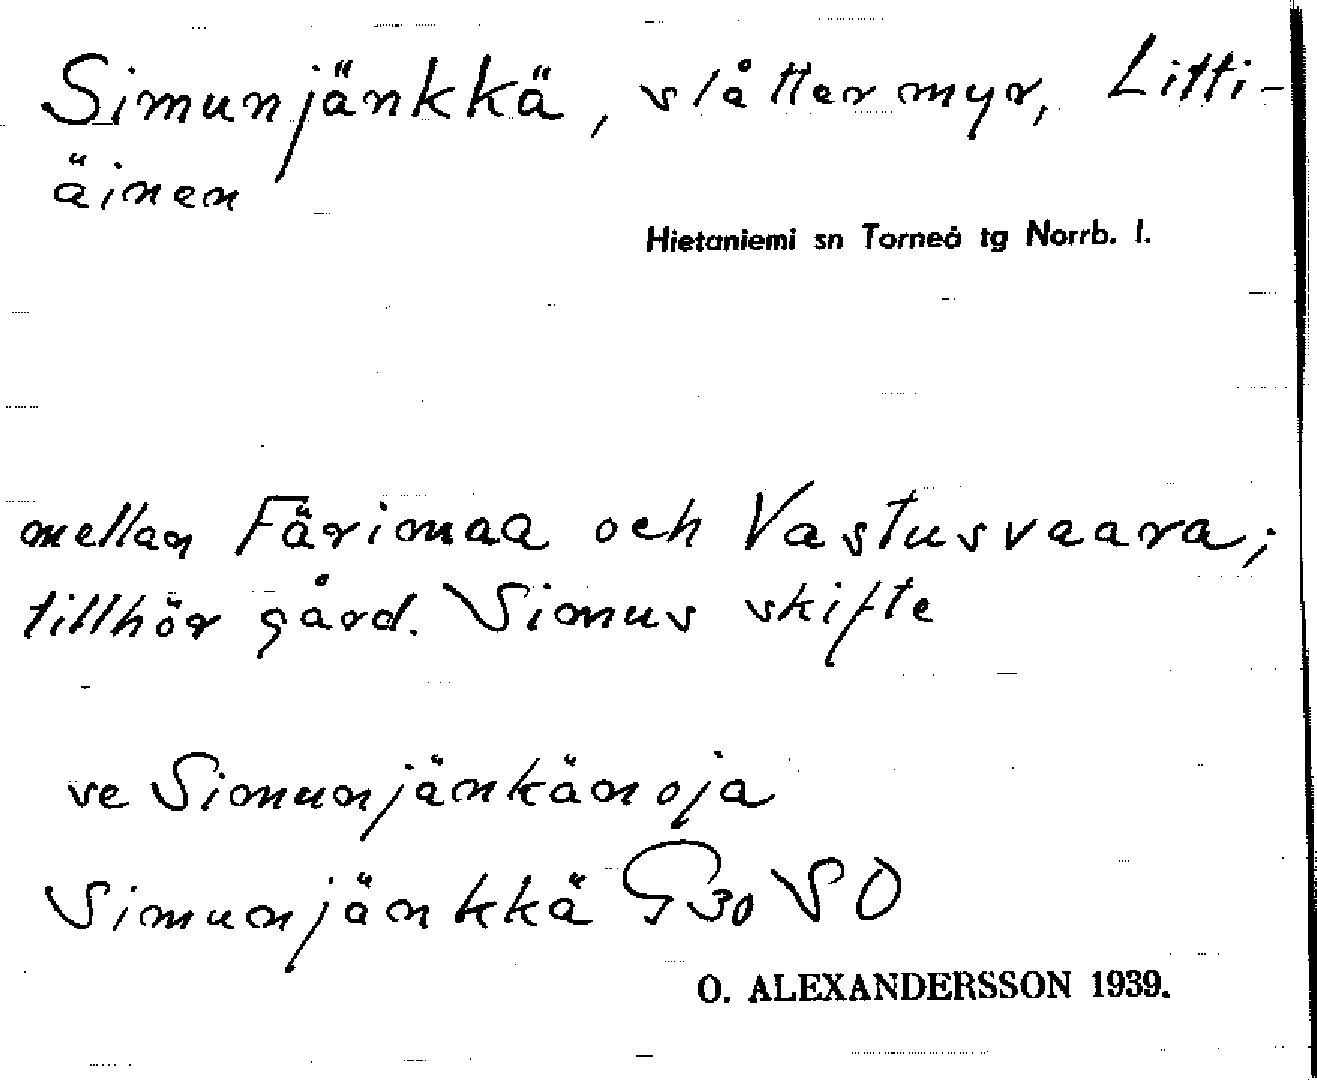 Simunjänkkä, slåttermyr, Litti-
äinen
Hietaniemi sn Torneå tg Norrb. l.
mellan Färimaa och Vastusvaara;
tillhör gård. Simus skifte
ve Simunjänkänoja
Simunjänkkä G30 SO
O. ALEXANDERSSON 1939.